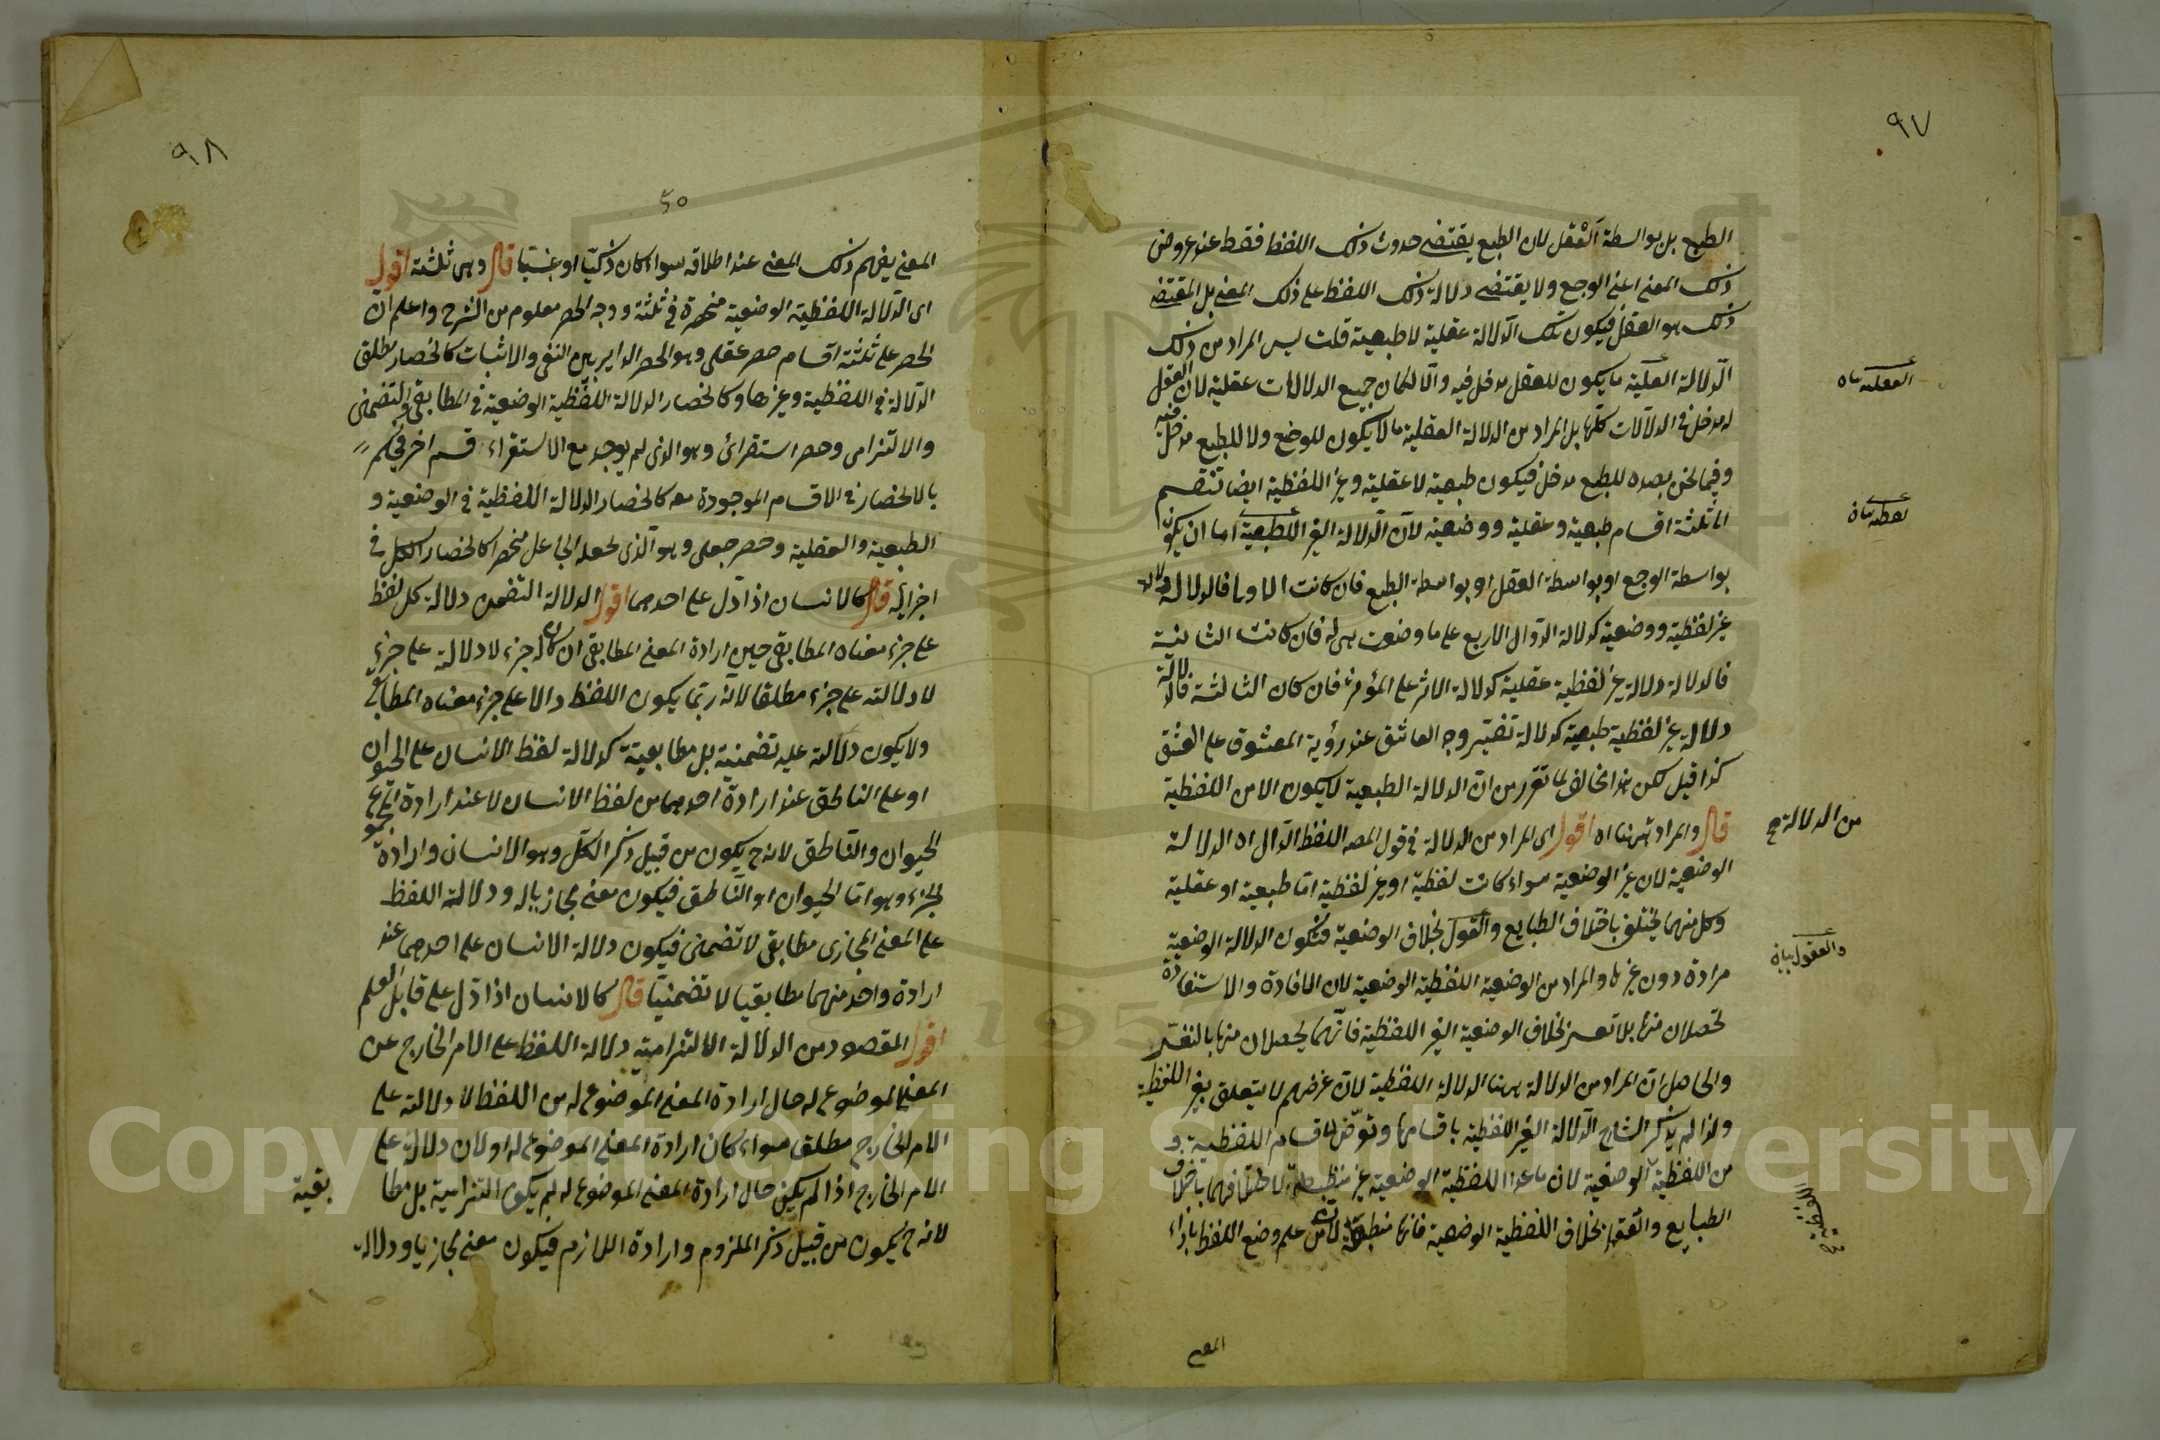 ٩٧
الطبع بل بواسطة العقل لان الطبع يقتضى حدوث ذلك اللفظ فقط عند عروض
ذلك المعنى اعنى الوجع ولا يقتضى دلالة ذلك اللفظ على ذلك المعنى بل المقتضى
ذلك هو العقل فيكون تلك الدلالة عقلية لا طبعية قلت ليس المراد من ذلك
الدلالة العقلية ما يكون للعقل مدخل فيه والا لكان جميع الدلالات عقلية لان العقل
له مدخل فى الدلالات كلها بل المراد من الدلالة العقلية ما لا يكون للوضع ولا للطبع مدخل فيه
وفيما نحن بصدده للطبع مدخل فيكون طبعية لا عقلية وغير اللفظية ايضا تنقسم
الى ثلثة اقسام طبعية وعقلية ووضعية لان الدلالة الغير اللفظية اما ان يكون
بواسطة الوضع او بواسطة العقل او بواسطة الطبع فان كانت الاولى فالدلالة دلالة
غير لفظية ووضعية كدلالة الدوال الاربع على ما وضعت هى له فان كانت الثانية
فالدلالة دلالة غير لفظية عقلية كدلالة الاثر على المؤثر فان كان الثالثة فالدلالة
دلالة غير لفظية طبعية كدلالة تغير وجه العاشق عند رؤية المعشوق على العشق
كذا قيل لكن هذا مخالف لما تقرر من ان الدلالة الطبعية لا يكون الا من اللفظية
قال والمراد ههنا اه اقول اى المراد من الدلالة فى قول المص اللفظ الدال اه الدلالة
الوضعية لان غير الوضعية سواء كانت لفظية او غير لفظية اما طبعية او عقلية
وكل منهما يختلف باختلاف الطبايع والعقول بخلاف الوضعية فتكون الدلالة الوضعية
مرادة دون غيرها والمراد من الوضعية اللفظية الوضعية لان الافادة والاستفادة
تحصلان منها بلا تعسر بخلاف الوضعية الغير اللفظية فانهما يحصلان منها بالتعسر
والحاصل ان المراد من الدلالة ههنا الدلالة اللفظية لان غرضهم لا يتعلق بغير اللفظية
ولذا لم يذكر الشارح الدلالة الغير اللفظية باقسامها وتعرض لاقسام اللفظية و
من اللفظية الوضعية لان ما عدا اللفظية الوضعية غير منضبطة لاختلافهما باختلاف
الطبايع والعقول بخلاف اللفظية الوضعية فانها منضبطة لان من علم وضع اللفظ بازاء
العقلية
لفظية
من الدلالة
والعقول
المعنى
٩٨
٥٠
المعنى يفهم ذلك المعنى عند اطلاقه سواء كان ذكيا او غبيا قال وهى ثلثة اقول
اى الدلالة اللفظية الوضعية منحصرة فى ثلثة ووجه الحصر معلوم من الشرح واعلم ان
الحصر على ثلثة اقسام حصر عقلى وهو الحصر الداير بين النفى والاثبات كانحصار مطلق
الدلالة فى اللفظية وغيرها وكانحصار الدلالة اللفظية الوضعية فى المطابقى والتضمنى
والالتزامى وحصر استقرائى وهو الذى لم يوجد مع الاستقراء قسم اخر فيحكم
بالانحصار فى الاقسام الموجودة معه كانحصار الدلالة اللفظية فى الوضعية و
الطبعية والعقلية وحصر جعلى وهو الذى يجعله الجاعل منحصرا كانحصار الكل فى
اجزائه قال كالانسان اذا دل على احدهما اقول الدلالة التضمن دلالة كل لفظ
على جزء معناه المطابقى حين ارادة المعنى المطابقى ان كان له جزء لا دلالة على جزء
لا دلالته على جزء مطلقا لانه ربما يكون اللفظ دالا على جزء معناه المطابقى
ولا يكون دلالته عليه تضمنية بل مطابقية كدلالة لفظ الانسان على الحيوان
او على الناطق عند ارادة احدهما من لفظ الانسان لا عند ارادة المجموع
الحيوان والناطق لانه ح يكون من قبيل ذكر الكل وهو الانسان وارادة
الجزء وهو اما الحيوان او الناطق فيكون معنى مجازيا له ودلالة اللفظ
على المعنى المجازى مطابقى لا تضمنى فيكون دلالة الانسان على احدهما عند
ارادة واحد منهما مطابقيا لا تضمنيا قال كالانسان اذا دل على قابل العلم
اقول المقصود من الدلالة الالتزامية دلالة اللفظ على الامر الخارج عن
المعنى الموضوع له حال ارادة المعنى الموضوع له من اللفظ لا دلالته على
الامر الخارج مطلق سواء كان ارادة المعنى الموضوع له او لان دلالة على
الامر الخارج اذا لم يكن حال ارادة المعنى الموضوع له لم يكن التزامية بل مطا
بقية
لانه ح يكون من قبيل ذكر الملزوم وارادة اللازم فيكون معنى مجازيا ودلالة